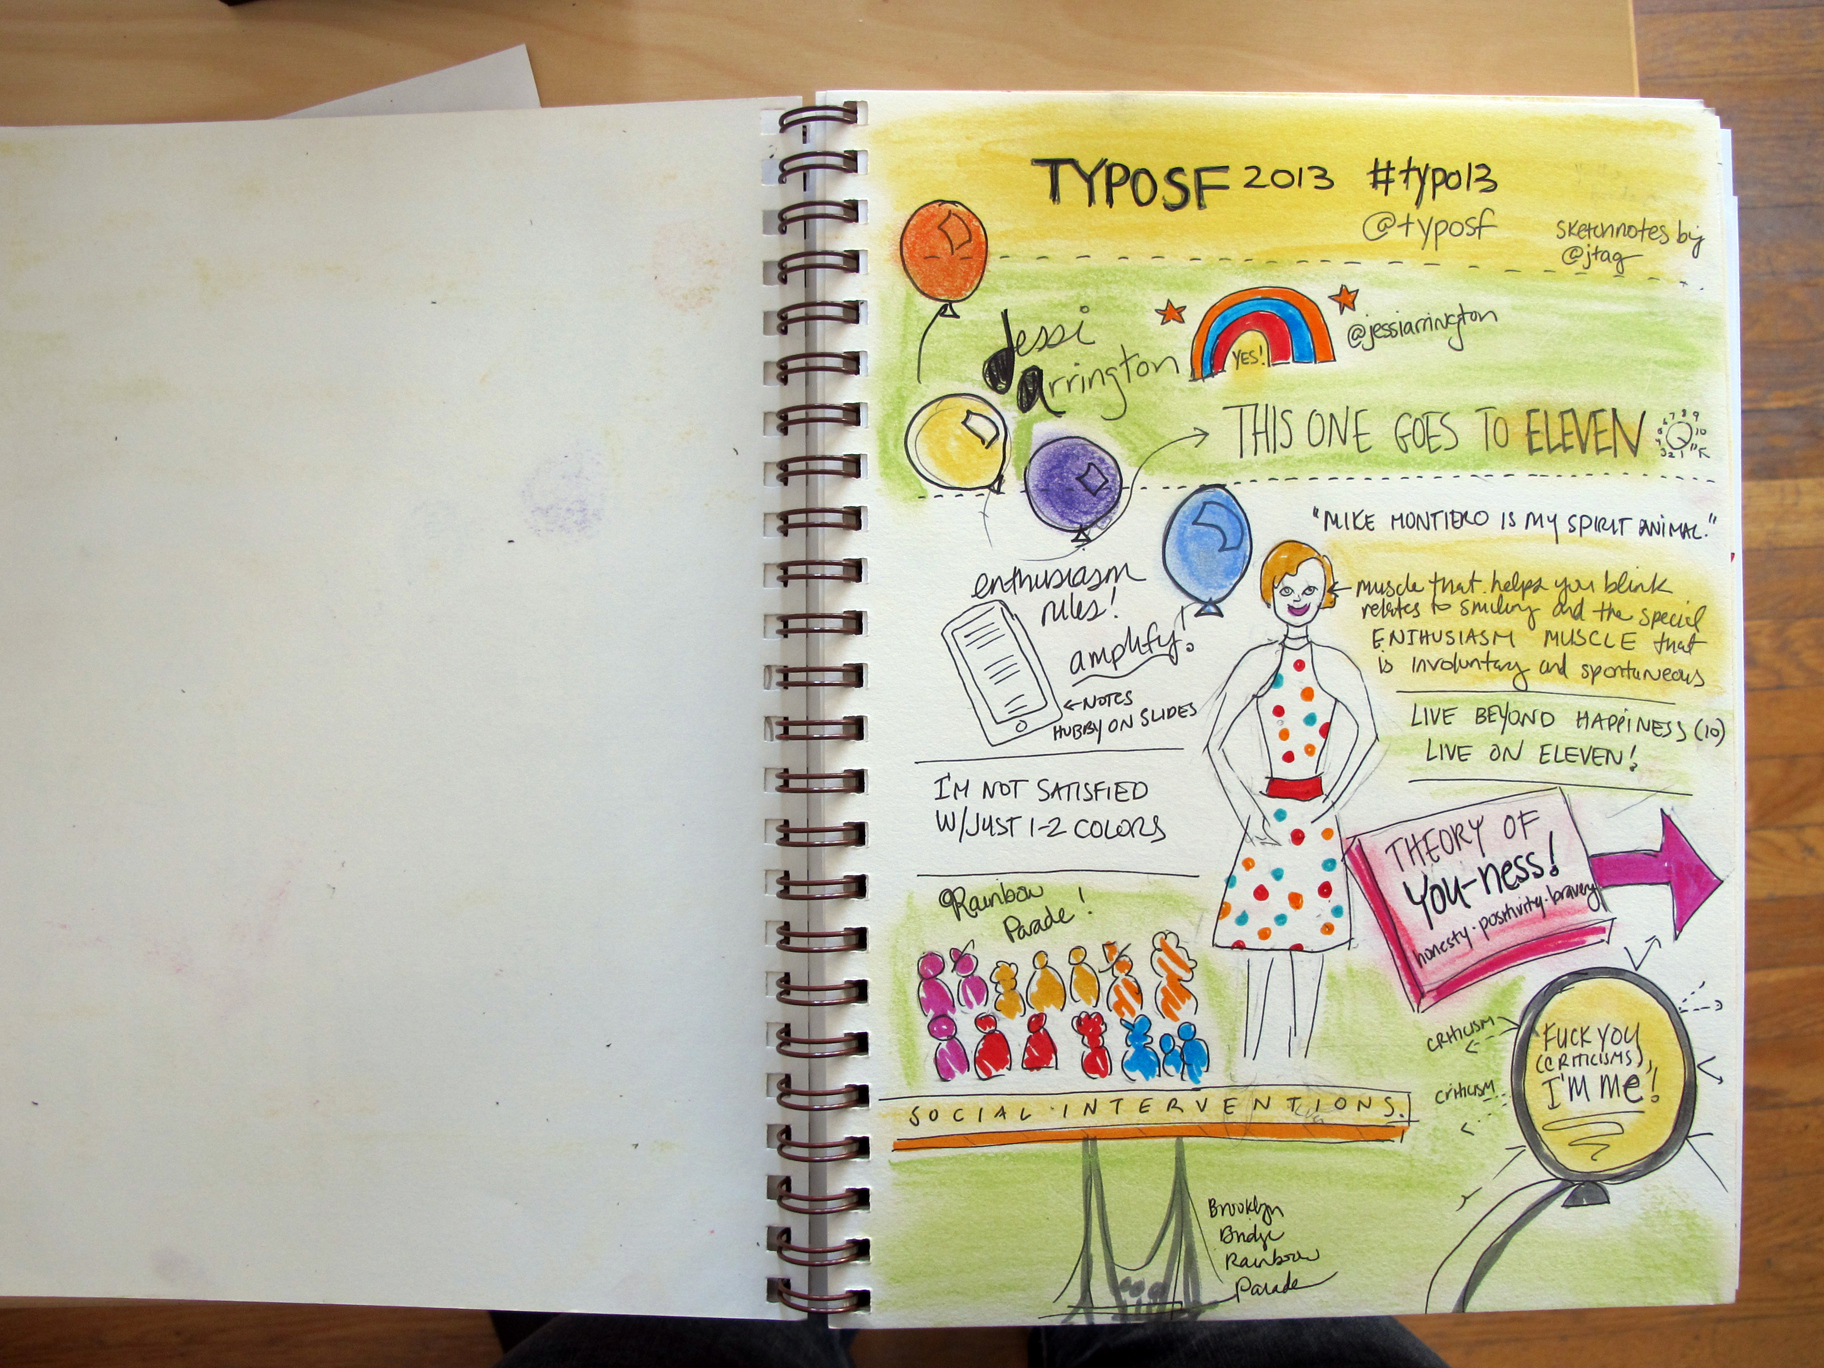 TYPOSF 2013 #typo13
@typosf
sketchnotes by
@jtag
Jessi
Arrington
YES!
@jessiarrington
THIS ONE GOES TO ELEVEN
"MIKE MONTIERO IS MY SPIRIT ANIMAL."
enthusiasm
rules!
amplify!
← NOTES
HUBBY ON SLIDES
muscle that helps you blink
relates to smiling and the special
ENTHUSIASM MUSCLE that
is involuntary and spontaneous
LIVE BEYOND HAPPINESS (10)
LIVE ON ELEVEN!
I'M NOT SATISFIED
W/JUST 1-2 COLORS
THEORY OF
YOU-NESS!
honesty · positivity · bravery
Rainbow
Parade!
CRITICISM
CRITICISM
FUCK YOU
(CRITICISMS),
I'M ME!
SOCIAL INTERVENTIONS.
Brooklyn
Bridge
Rainbow
Parade